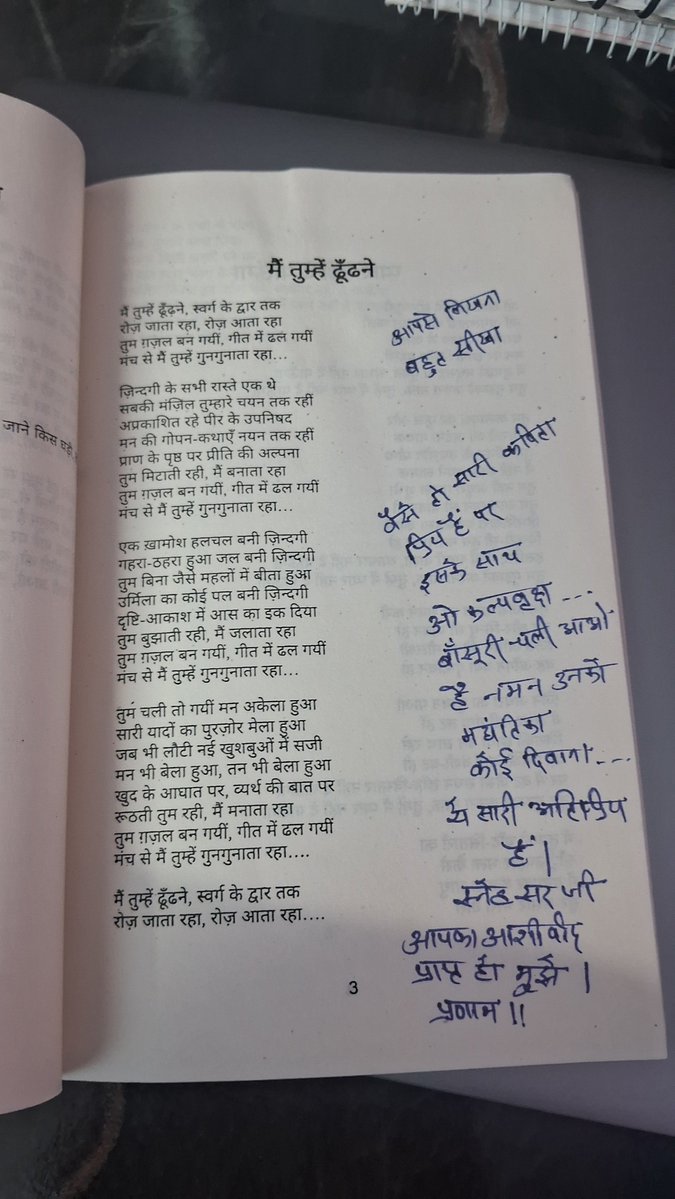 मैं तुम्हें ढूँढने
मैं तुम्हें ढूँढने, स्वर्ग के द्वार तक
रोज़ जाता रहा, रोज़ आता रहा
तुम ग़ज़ल बन गयीं, गीत में ढल गयीं
मंच से मैं तुम्हें गुनगुनाता रहा...
ज़िन्दगी के सभी रास्ते एक थे
सबकी मंज़िल तुम्हारे चयन तक रहीं
अप्रकाशित रहे पीर के उपनिषद
मन की गोपन-कथाएँ नयन तक रहीं
प्राण के पृष्ठ पर प्रीति की अल्पना
तुम मिटाती रही, मैं बनाता रहा
तुम ग़ज़ल बन गयीं, गीत में ढल गयीं
मंच से मैं तुम्हें गुनगुनाता रहा...
एक ख़ामोश हलचल बनी ज़िन्दगी
गहरा-ठहरा हुआ जल बनी ज़िन्दगी
तुम बिना जैसे महलों में बीता हुआ
उर्मिला का कोई पल बनी ज़िन्दगी
दृष्टि-आकाश में आस का इक दिया
तुम बुझाती रही, मैं जलाता रहा
तुम ग़ज़ल बन गयीं, गीत में ढल गयीं
मंच से मैं तुम्हें गुनगुनाता रहा...
तुम चली तो गयीं मन अकेला हुआ
सारी यादों का पुरज़ोर मेला हुआ
जब भी लौटी नई खुशबुओं में सजी
मन भी बेला हुआ, तन भी बेला हुआ
खुद के आघात पर, व्यर्थ की बात पर
रूठती तुम रही, मैं मनाता रहा
तुम ग़ज़ल बन गयीं, गीत में ढल गयीं
मंच से मैं तुम्हें गुनगुनाता रहा....
मैं तुम्हें ढूँढने, स्वर्ग के द्वार तक
रोज़ जाता रहा, रोज़ आता रहा....
3
आपसे लिखना
बहुत सीखा
वैसे तो सारी कविता
प्रिय हैं पर
इसके साथ
ओ कल्पवृक्ष ...
बाँसुरी चली आओ
है नमन उनको
मधंतिका
कोई दिवाना ...
ये सारी अतिप्रिय
हैं|
सर जी
आपका आशीर्वाद
प्राप्त हो मुझे |
प्रणाम !!
जाने किस घड़ी